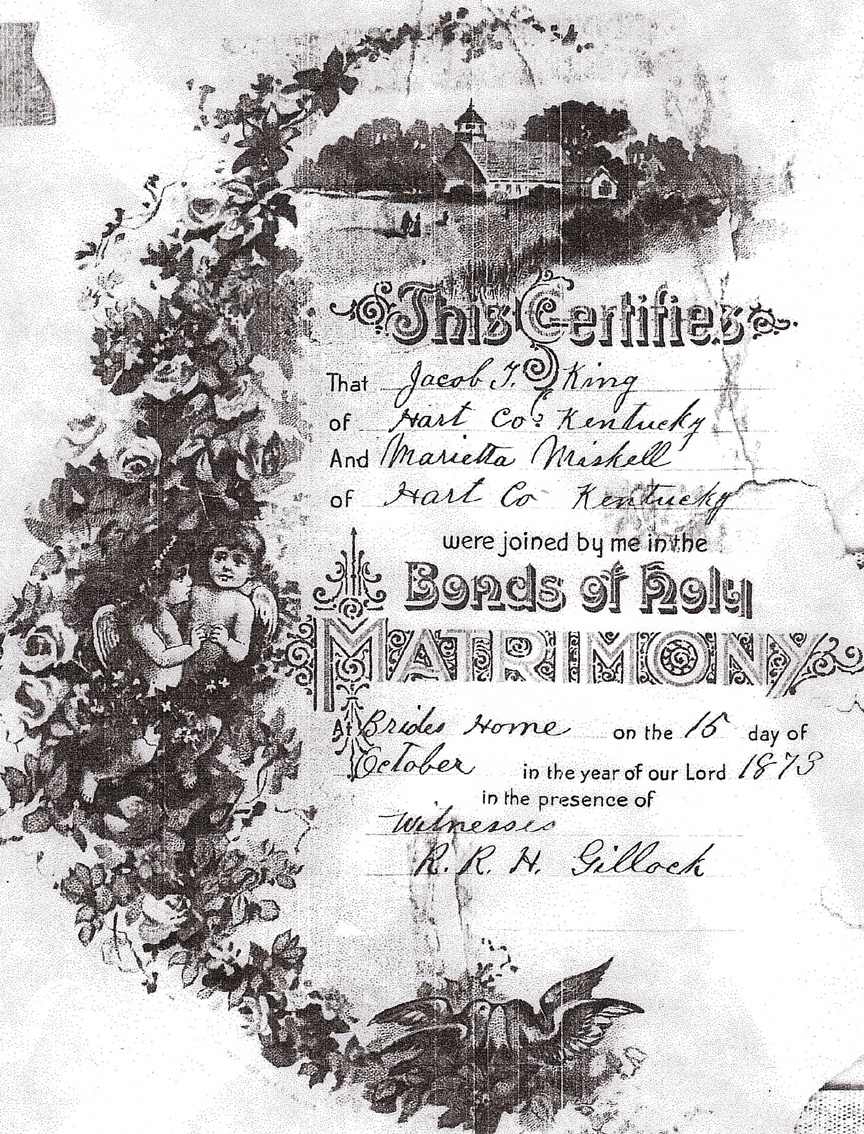 This Certifies
That Jacob T. King
of Hart Co. Kentucky
And Marietta Miskell
of Hart Co Kentucky
were joined by me in the
Bonds of Holy
MATRIMONY
At Brides Home on the 15 day of
October in the year of our Lord 1873
in the presence of
Witnesses
R. R. H. Gillock